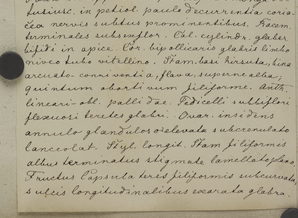 tusiusc. in petiol. paulo decurrenta coria
cea nervis subtus prominentibus. Racem.
terminales subsexflor. Cal. cylindr. glaber
bifidi in apice. Cor. bipollicaris glabris limbo
niveo tubo vitellino. Stam. basi hirsuta, bina
arcuato conniventia, flava, superne alba,
quintum abortivum filiforme. Anth.
lineari-obl. pallidae. Pedicelli subbiflori
flexuosi teretes glabri. Ovar. insidens
annulo glanduloso elevato subcrenulato
lanceolat. Styl. longit. Stam filiformis
albus terminatus stigmate lamellato plano
Fructus Capsula teres filiformis subcurvata
sulcis longitudinalibus exarata glabra.